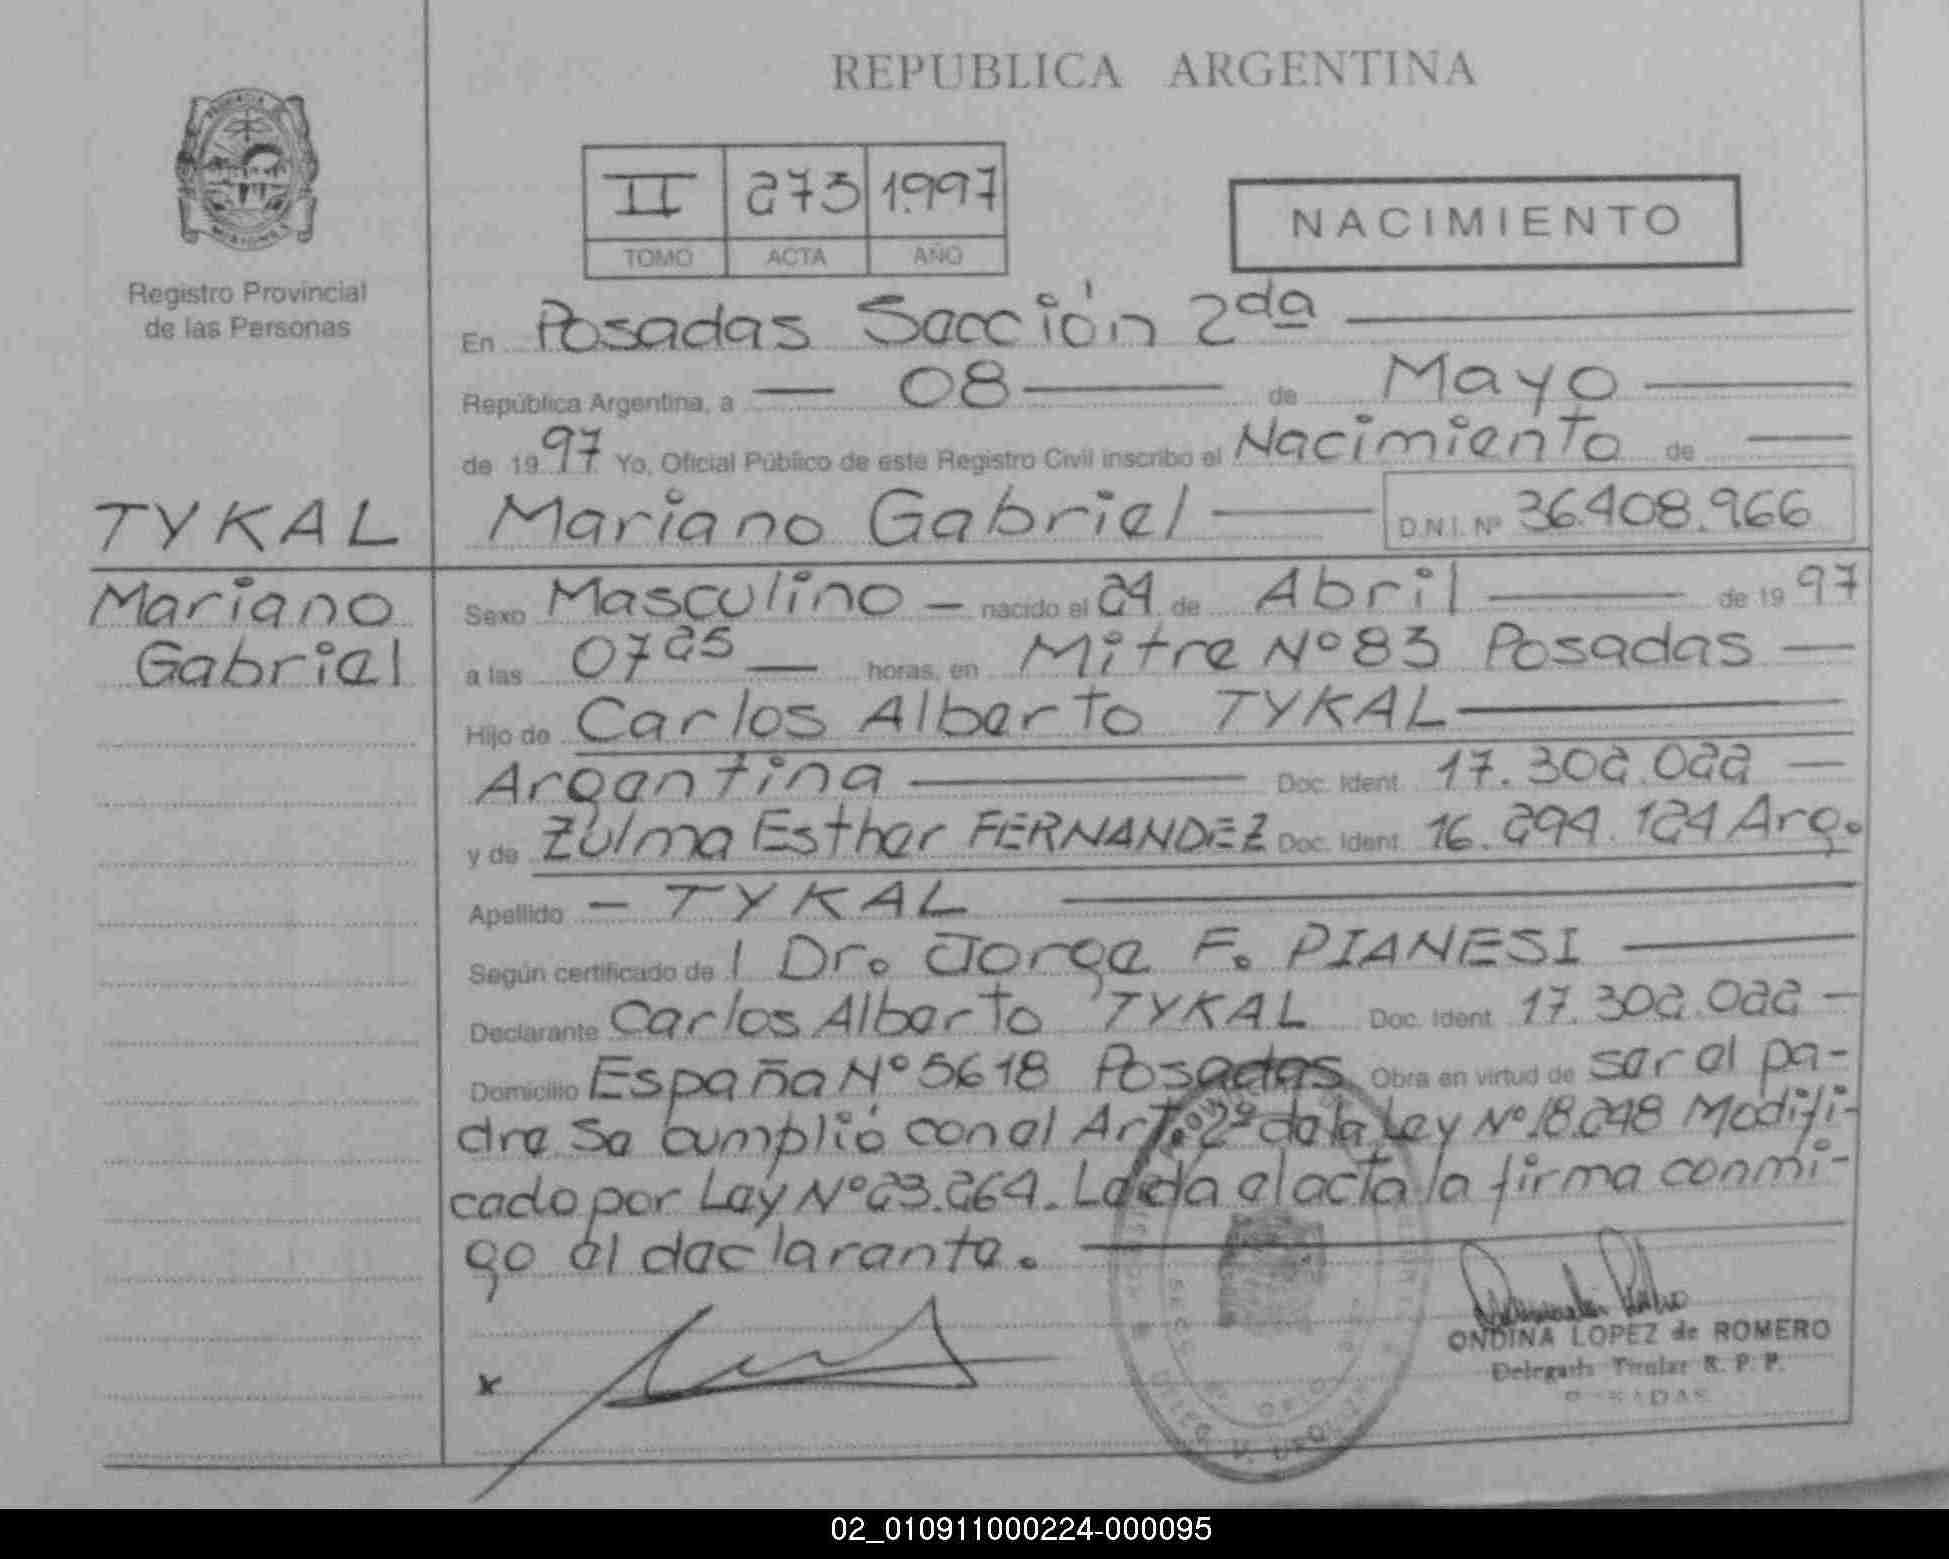 REPUBLICA ARGENTINA
Registro Provincial
de las Personas
TYKAL
Mariano
Gabriel
II 273 1.997
TOMO ACTA AÑO
NACIMIENTO
En Posadas Sección 2da
República Argentina, a 08 de Mayo
de 1997 Yo, Oficial Público de este Registro Civil inscribo el Nacimiento de
Mariano Gabriel D.N.I. Nº 36.408.966
Sexo Masculino nacido el 24 de Abril de 1997
a las 07 25 horas, en Mitre Nº 83 Posadas
Hijo de Carlos Alberto TYKAL
Argentina Doc. Ident. 17.302.022
y de Zulma Esther FERNANDEZ Doc. Ident. 16.294.124 Arg.
Apellido TYKAL
Según certificado de l Dr. Jorge F. PIANESI
Declarante Carlos Alberto TYKAL Doc. Ident. 17.302.022
Domicilio España Nº 5618 Posadas Obra en virtud de ser el pa-
dre Se cumplió con el Art. 2º de la Ley Nº 18.248 Modifi-
cado por Ley Nº 23.264. Leída el acta la firma conmi-
go el declarante.
x
ONDINA LOPEZ de ROMERO
Delegada Titular R. P. P.
POSADAS
02_010911000224-000095